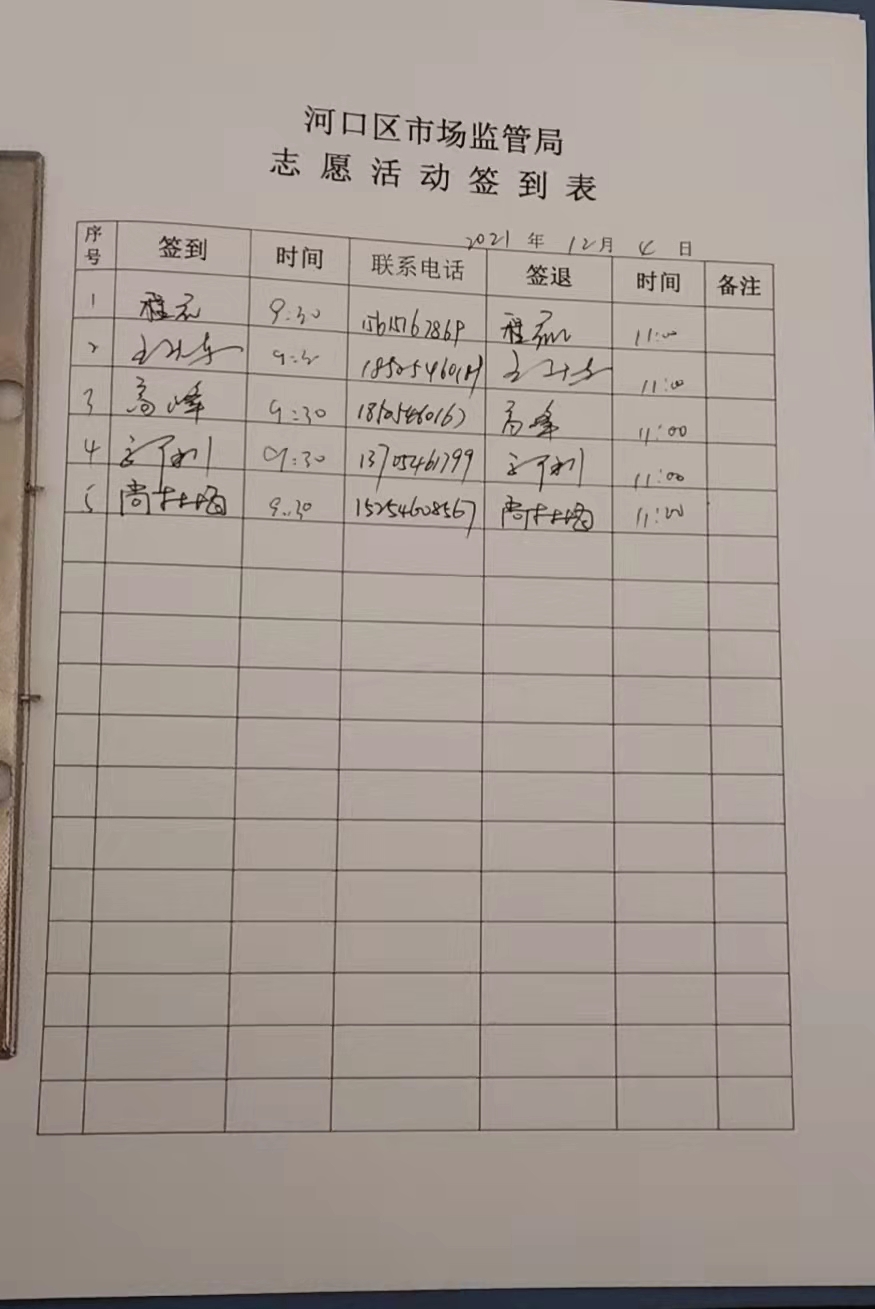 河口区市场监管局
志愿活动签到表
2021年12月4日
序号 签到 时间 联系电话 签退 时间 备注
1 程 9:30 15615762869 程 11:00
2 9:30 11:00
3 高峰 9:30 18505460167 高峰 11:00
4 9:30 13705461799 11:00
5 尚 9:30 15254608567 尚 11:00